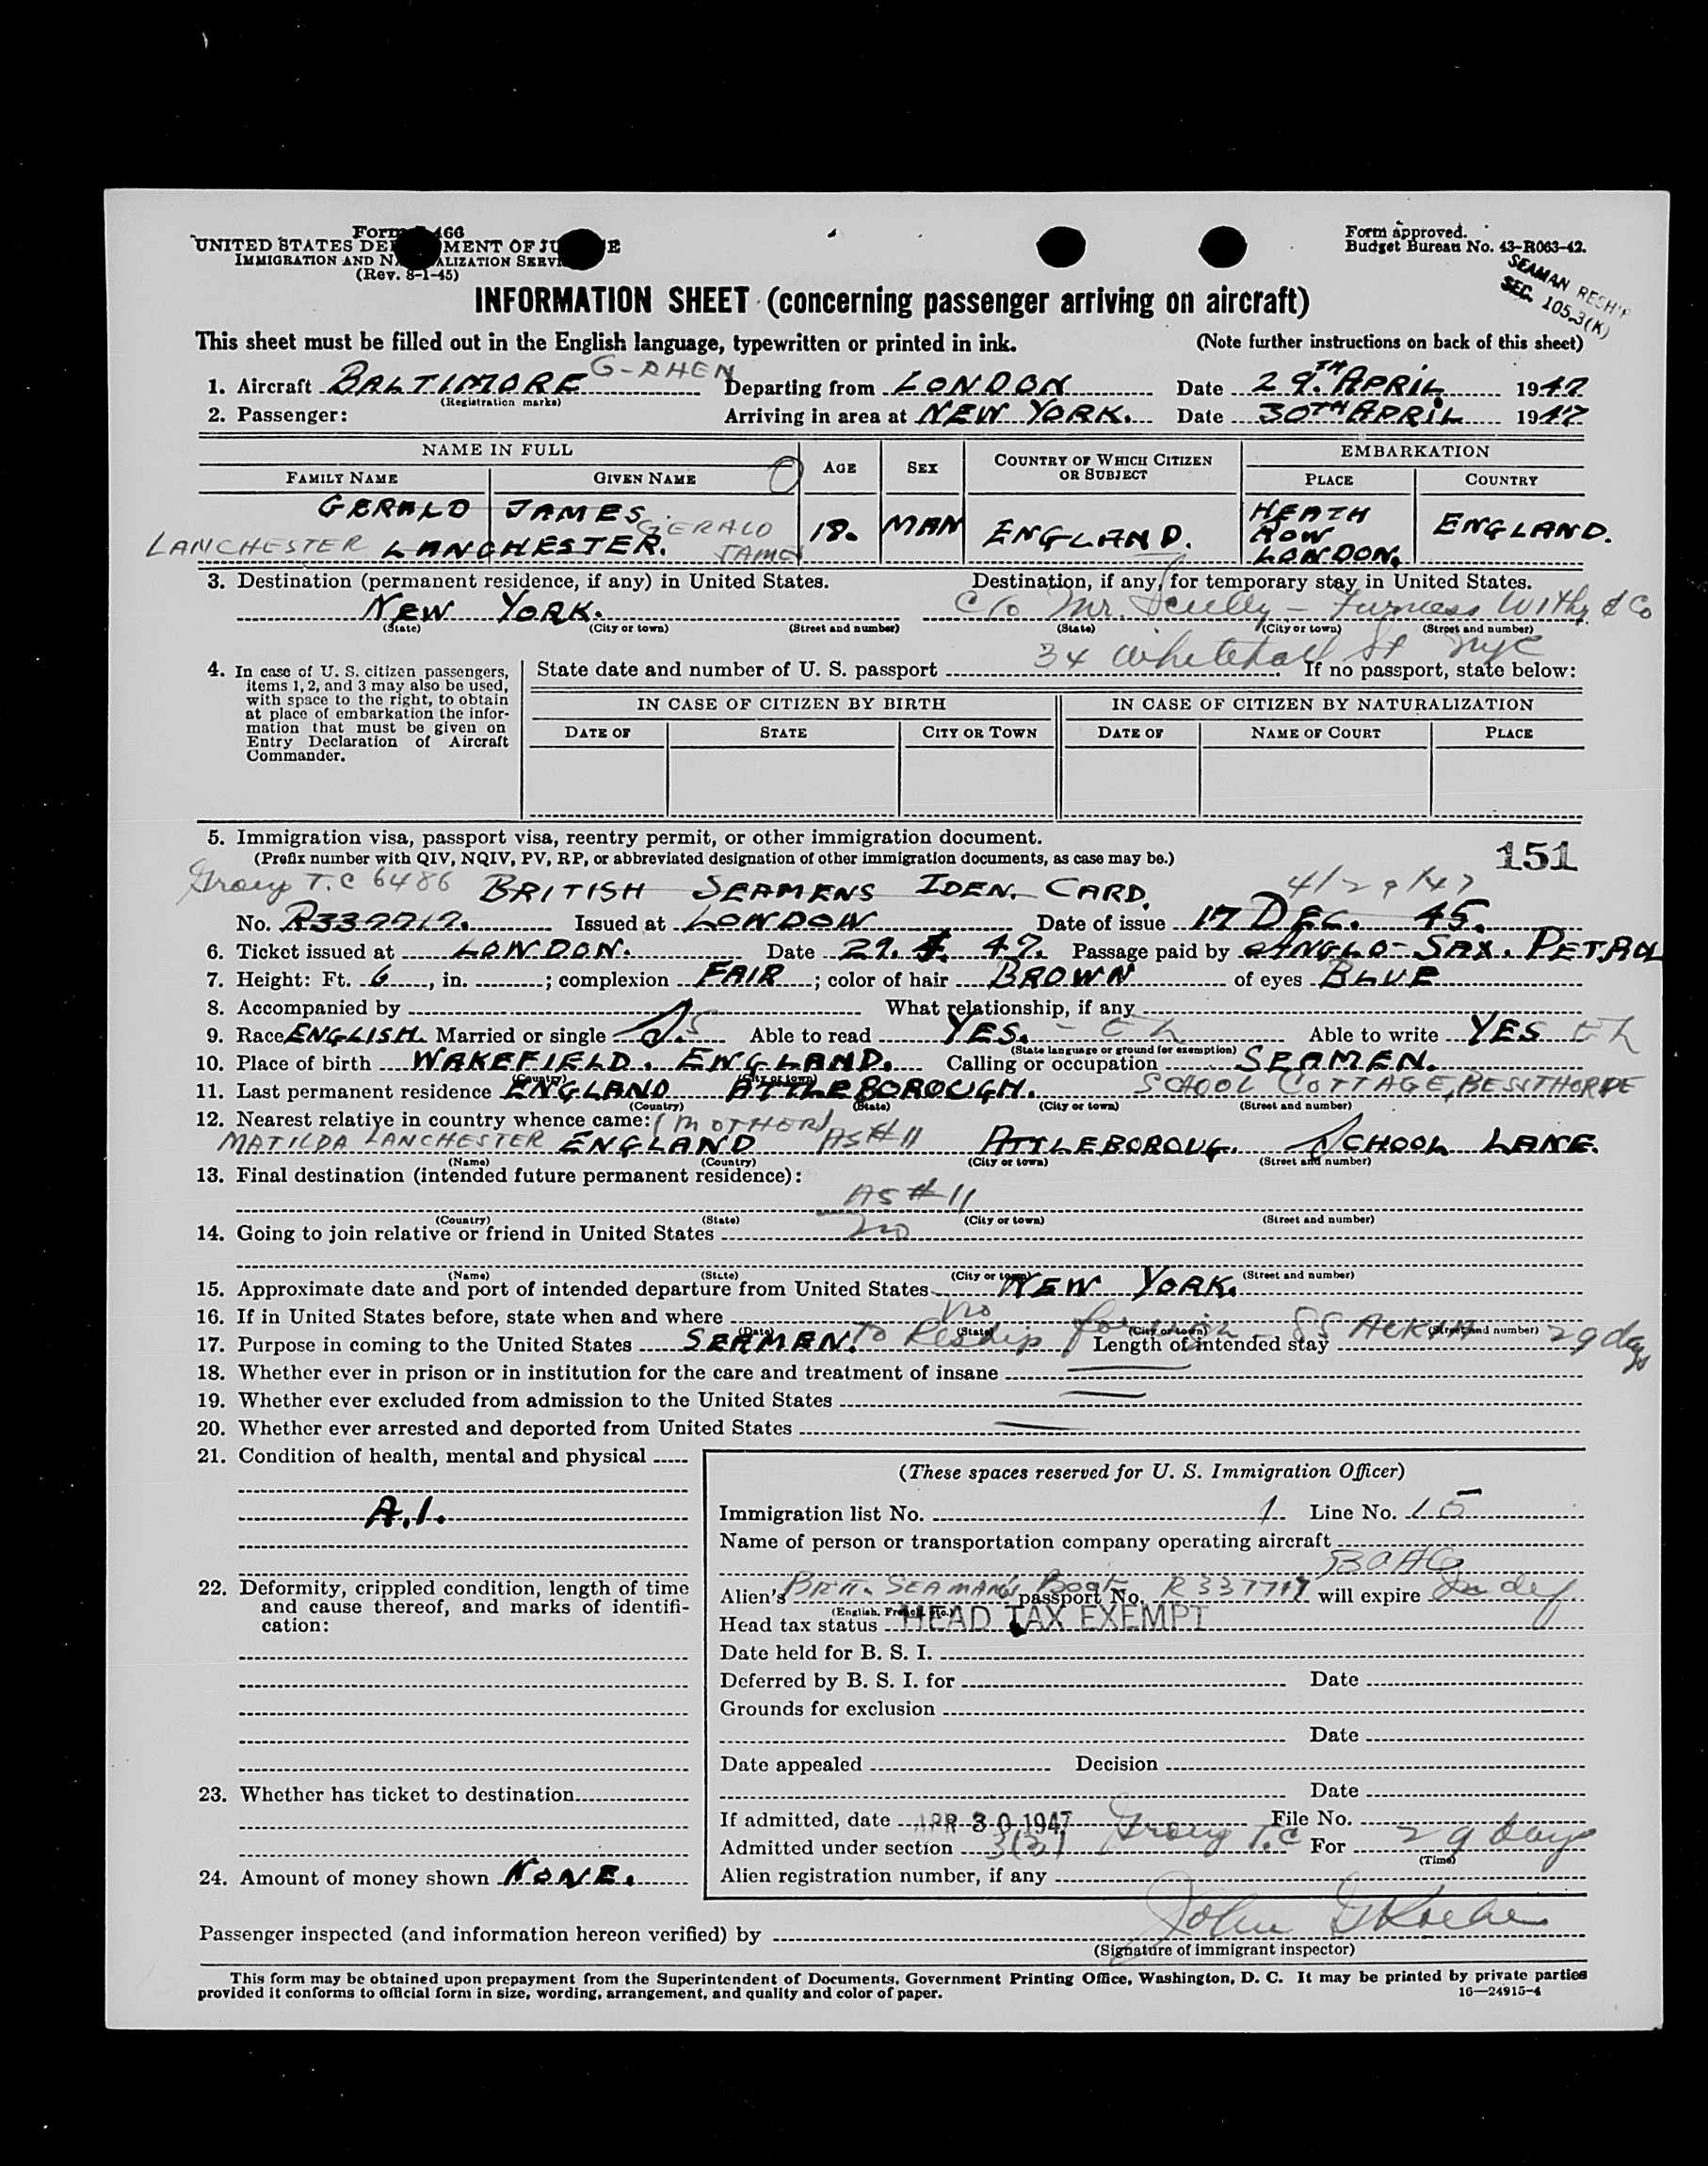 Form 466
UNITED STATES DE MENT OF JU E
IMMIGRATION AND N ALIZATION SERVI
(Rev. 8-1-45)
Form approved.
Budget Bureau No. 43-R063-42.
SEAMAN RESHIP
SEC. 105.3(K)
INFORMATION SHEET (concerning passenger arriving on aircraft)
This sheet must be filled out in the English language, typewritten or printed in ink. (Note further instructions on back of this sheet)
1. Aircraft BALTIMORE G-AHEN Departing from LONDON Date 29.TH APRIL 1947
(Registration marks)
2. Passenger: Arriving in area at NEW YORK. Date 30TH APRIL 1947
NAME IN FULL AGE SEX COUNTRY OF WHICH CITIZEN OR SUBJECT EMBARKATION
FAMILY NAME GIVEN NAME PLACE COUNTRY
GERALD JAMES GERALD 18. MAN ENGLAND. HEATH ROW LONDON. ENGLAND.
LANCHESTER LANCHESTER. JAMES
3. Destination (permanent residence, if any) in United States. Destination, if any, for temporary stay in United States.
NEW YORK. C/o Mr. Scully - Furness Withy & Co
(State) (City or town) (Street and number) (State) (City or town) (Street and number)
34 Whitehall St NYC
4. In case of U. S. citizen passengers, items 1, 2, and 3 may also be used, with space to the right, to obtain at place of embarkation the information that must be given on Entry Declaration of Aircraft Commander.
State date and number of U. S. passport If no passport, state below:
IN CASE OF CITIZEN BY BIRTH IN CASE OF CITIZEN BY NATURALIZATION
DATE OF STATE CITY OR TOWN DATE OF NAME OF COURT PLACE
5. Immigration visa, passport visa, reentry permit, or other immigration document.
(Prefix number with QIV, NQIV, PV, RP, or abbreviated designation of other immigration documents, as case may be.) 151
T.C 6486 BRITISH SEAMENS IDEN. CARD. 4/29/47
No. R337717. Issued at LONDON Date of issue 17 DEC. 45.
6. Ticket issued at LONDON. Date 29. 4. 47. Passage paid by ANGLO-SAX. PETROL
7. Height: Ft. 6, in. ; complexion FAIR; color of hair BROWN of eyes BLUE
8. Accompanied by What relationship, if any
9. Race ENGLISH. Married or single S. S Able to read YES. - Able to write YES
(State language or ground for exemption)
10. Place of birth WAKEFIELD. ENGLAND. Calling or occupation SEAMEN.
(Country) (City or town)
11. Last permanent residence ENGLAND ATTLEBOROUGH. SCHOOL COTTAGE, BESSTHORPE
(Country) (State) (City or town) (Street and number)
12. Nearest relative in country whence came: (MOTHER)
MATILDA LANCHESTER ENGLAND AS # 11 ATTLEBOROUG. SCHOOL LANE.
(Name) (Country) (City or town) (Street and number)
13. Final destination (intended future permanent residence):
AS # 11
(Country) (State) (City or town) (Street and number)
14. Going to join relative or friend in United States no
(Name) (State) (City or town) (Street and number)
15. Approximate date and port of intended departure from United States NEW YORK.
16. If in United States before, state when and where no
(Date) (State) (City or town) (Street and number)
17. Purpose in coming to the United States SEAMEN. To Reship SS Length of intended stay 29 days
18. Whether ever in prison or in institution for the care and treatment of insane
19. Whether ever excluded from admission to the United States
20. Whether ever arrested and deported from United States
21. Condition of health, mental and physical
A.1.
22. Deformity, crippled condition, length of time and cause thereof, and marks of identification:
23. Whether has ticket to destination
24. Amount of money shown NONE.
(These spaces reserved for U. S. Immigration Officer)
Immigration list No. 1 Line No. 15
Name of person or transportation company operating aircraft
BOAC
Alien's BRIT. SEAMAN'S Book passport No. R337717 will expire Indef.
(English, French, etc.)
Head tax status HEAD TAX EXEMPT
Date held for B. S. I.
Deferred by B. S. I. for Date
Grounds for exclusion
Date
Date appealed Decision
Date
If admitted, date APR 30 1947 File No.
Admitted under section 3(2) T.C For 29 days
(Time)
Alien registration number, if any
Passenger inspected (and information hereon verified) by John
(Signature of immigrant inspector)
This form may be obtained upon prepayment from the Superintendent of Documents, Government Printing Office, Washington, D. C. It may be printed by private parties
provided it conforms to official form in size, wording, arrangement, and quality and color of paper. 16—24915-4